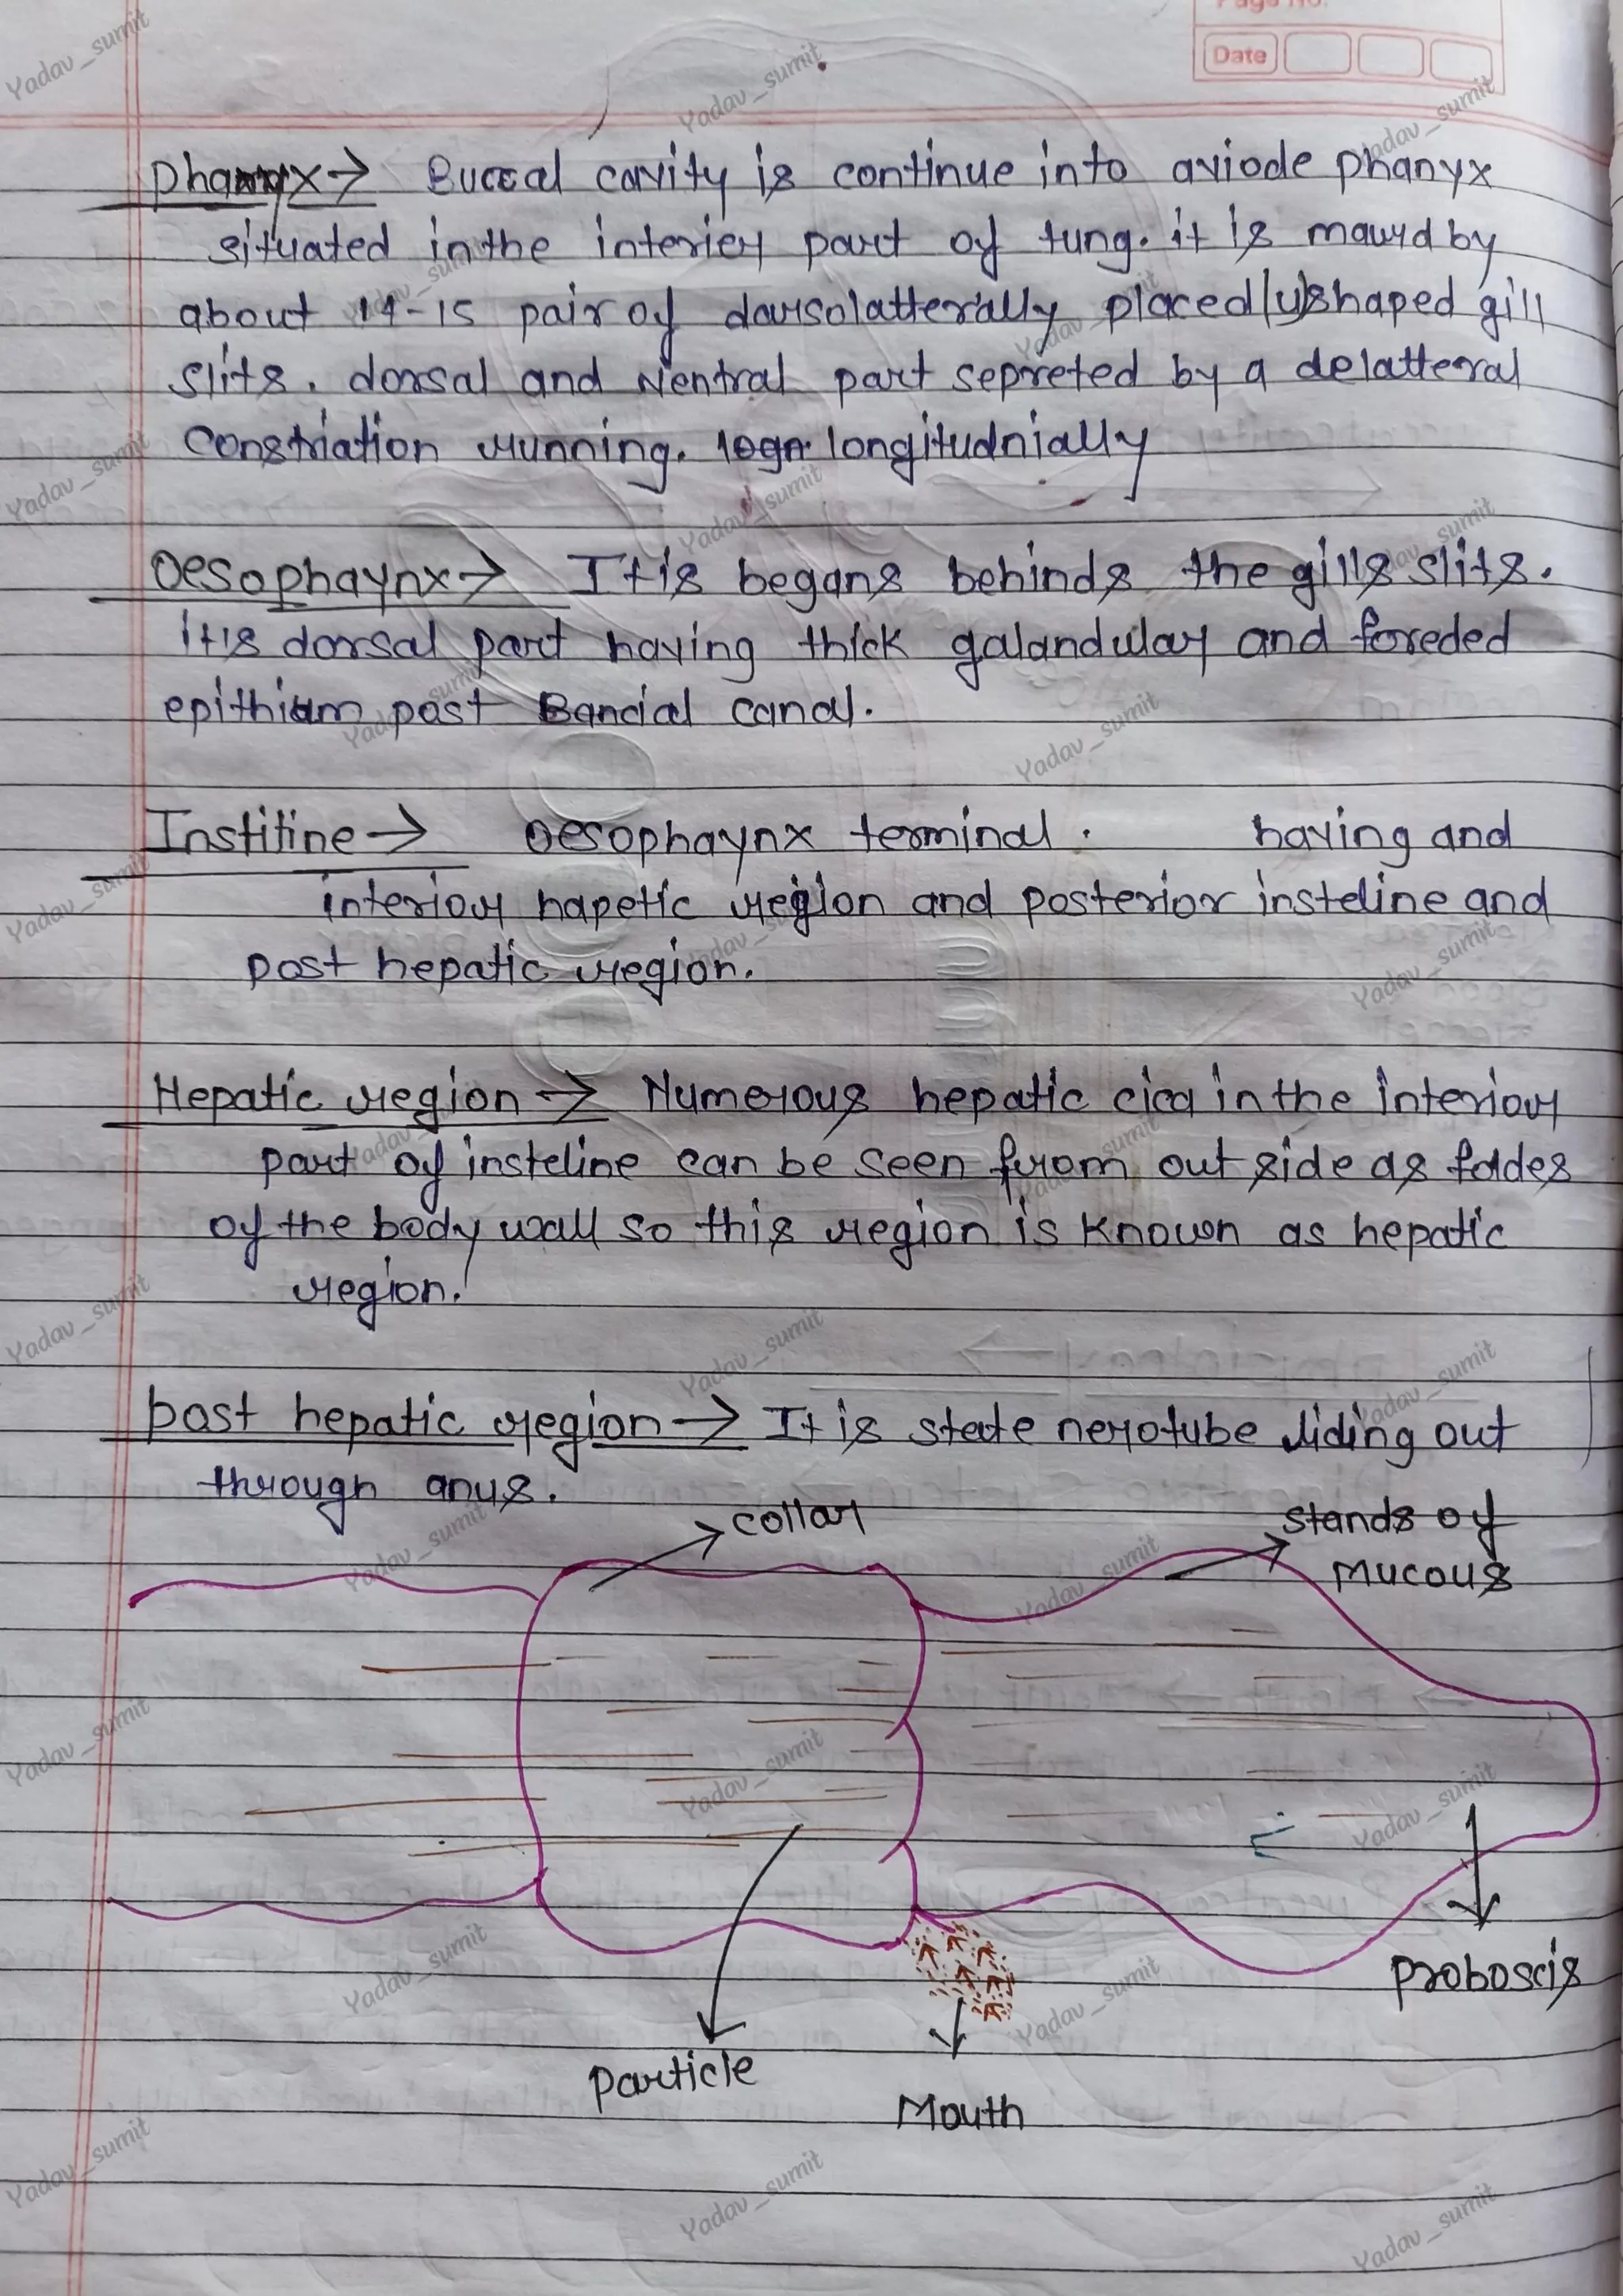 Page No.
Date
Phanyx → Buccal cavity is continue into aviode phanyx
situated in the interior part of tung. it is mawrd by
about 14-15 pair of darsolatterally placed (u) shaped gill
slits. dorsal and Ventral part sepreted by a delatteral
Constriation running. logn longitudnially
Oesophaynx → It is begans behinds the gills slits.
it is dorsal part having thick galandular and foreded
epithium post Bancial canal.
Institine → Oesophaynx terminal. having and
interior hapetic region and posterior insteline and
post hepatic region.
Hepatic region → Numerous hepatic cica in the interior
part of insteline can be seen from out side as foldes
of the body wall so this region is known as hepatic
region.
post hepatic region → It is state nerotube liding out
through anus.
collar
stands of
Mucous
proboscis
particle
Mouth
Yadav_sumit